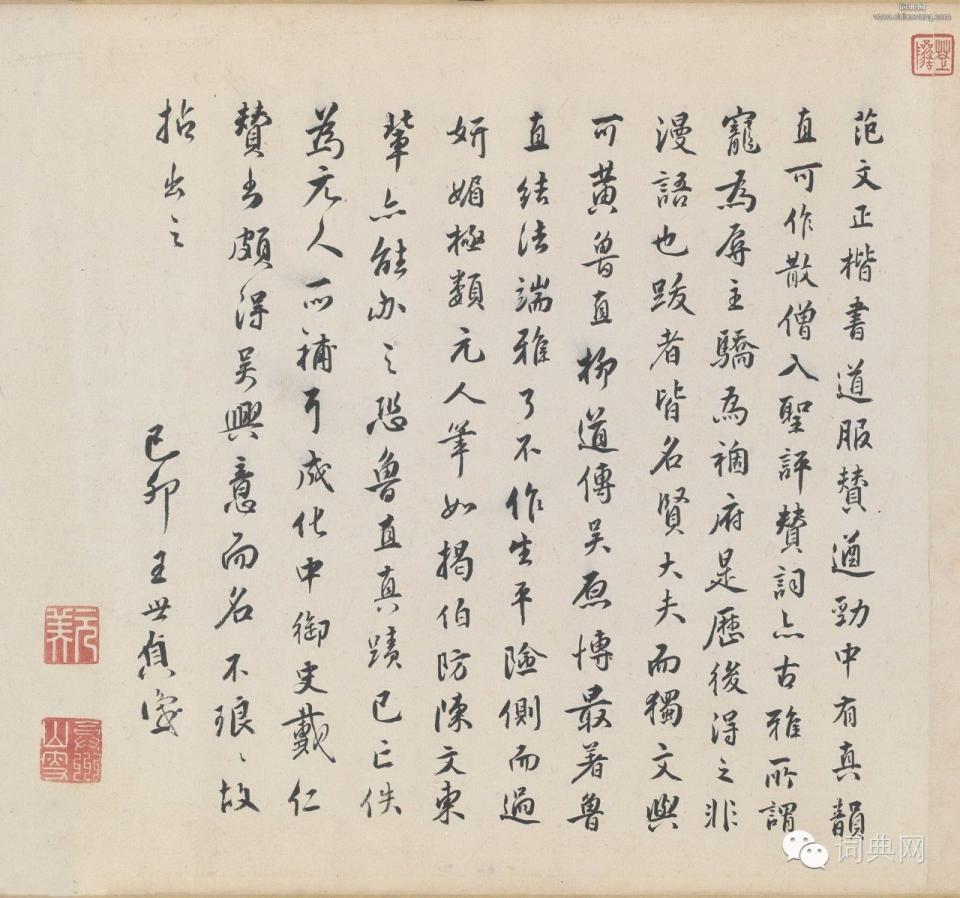 范文正楷書道服贊遒勁中有真韻
直可作散僧入聖評贊詞亦古雅所謂
寵為辱主驕為禍府是歷後得之非
漫語也跋者皆名賢大夫而獨文與
可黃魯直柳道傳吳原博最著魯
直結法端雅了不作生平險側而過
妍媚極類元人筆如揭伯防陳文東
輩亦能辦之恐魯直真蹟已亡佚
為元人所補耳成化中御史戴仁
贊書頗得吳興意而名不琅琅故
拈出之
己卯王世貞識
元美
弇州山人
詞典網
www.cidianwang.com
词典网